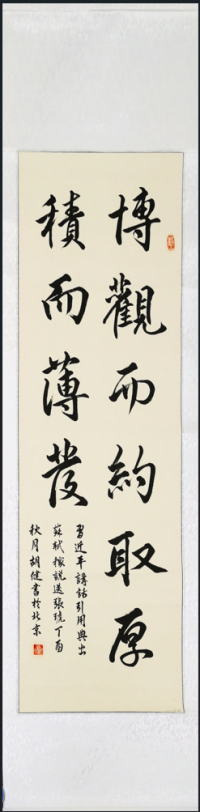 博觀而約取厚
積而薄發
習近平講話引用典出
蘇軾稼說送張琥丁酉
秋月胡健書於北京